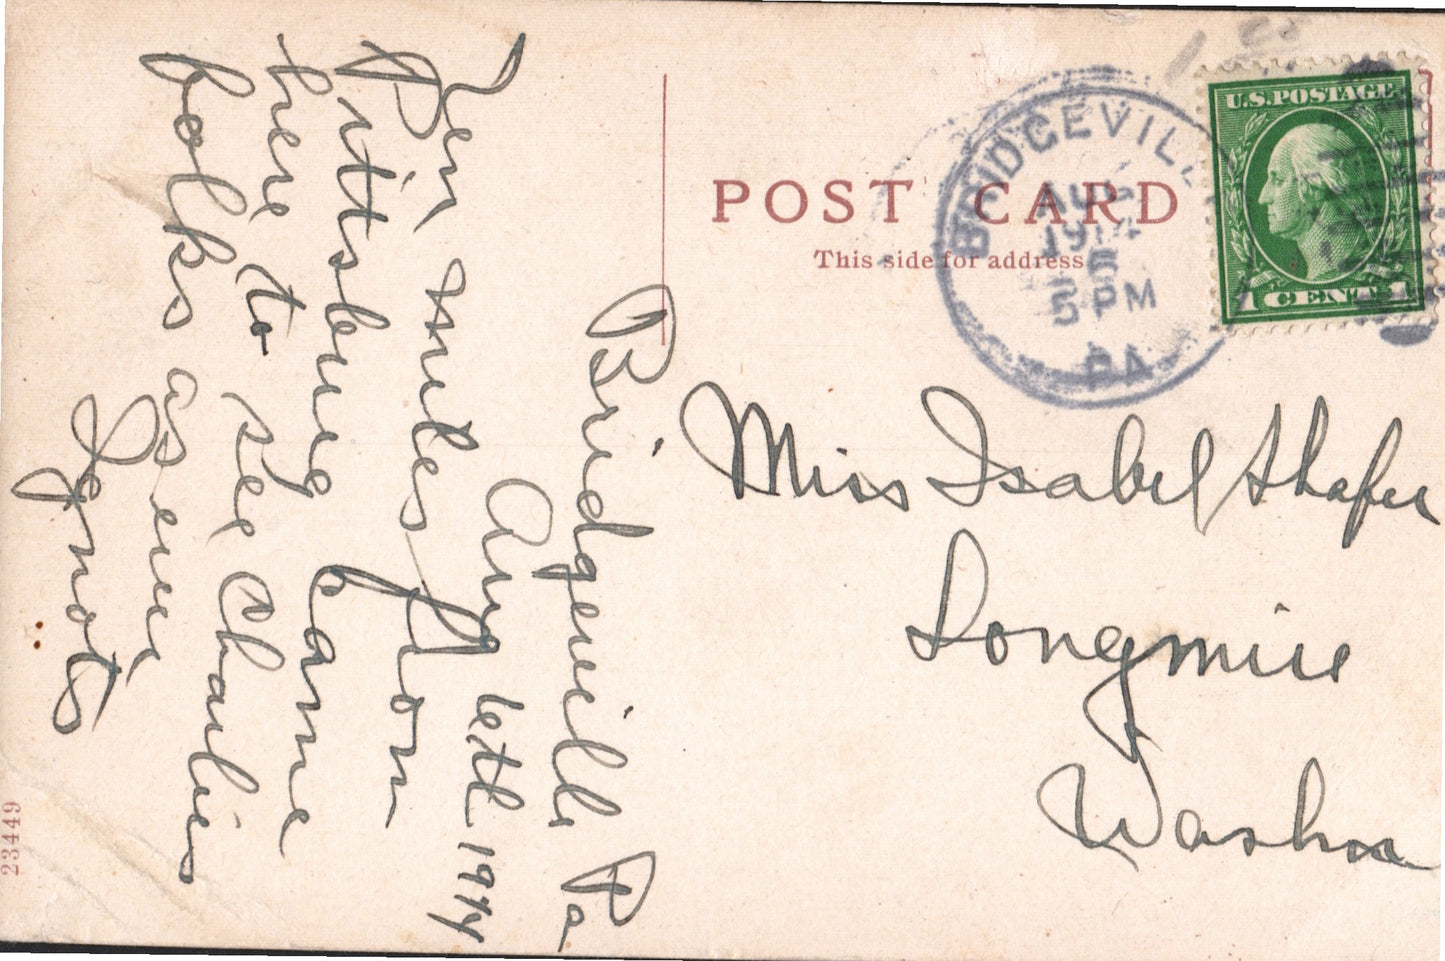 Bridgeville Pa
Aug 6th 1914
Ten miles from
Pittsburg came
here to see Charlies
folks as ever
POST CARD
This side for address
BRIDGEVILLE
AUG
5
1914
5 PM
PA.
U.S.POSTAGE
1 CENT 1
Miss Isabel Shafer
Longmire
Washn
23449